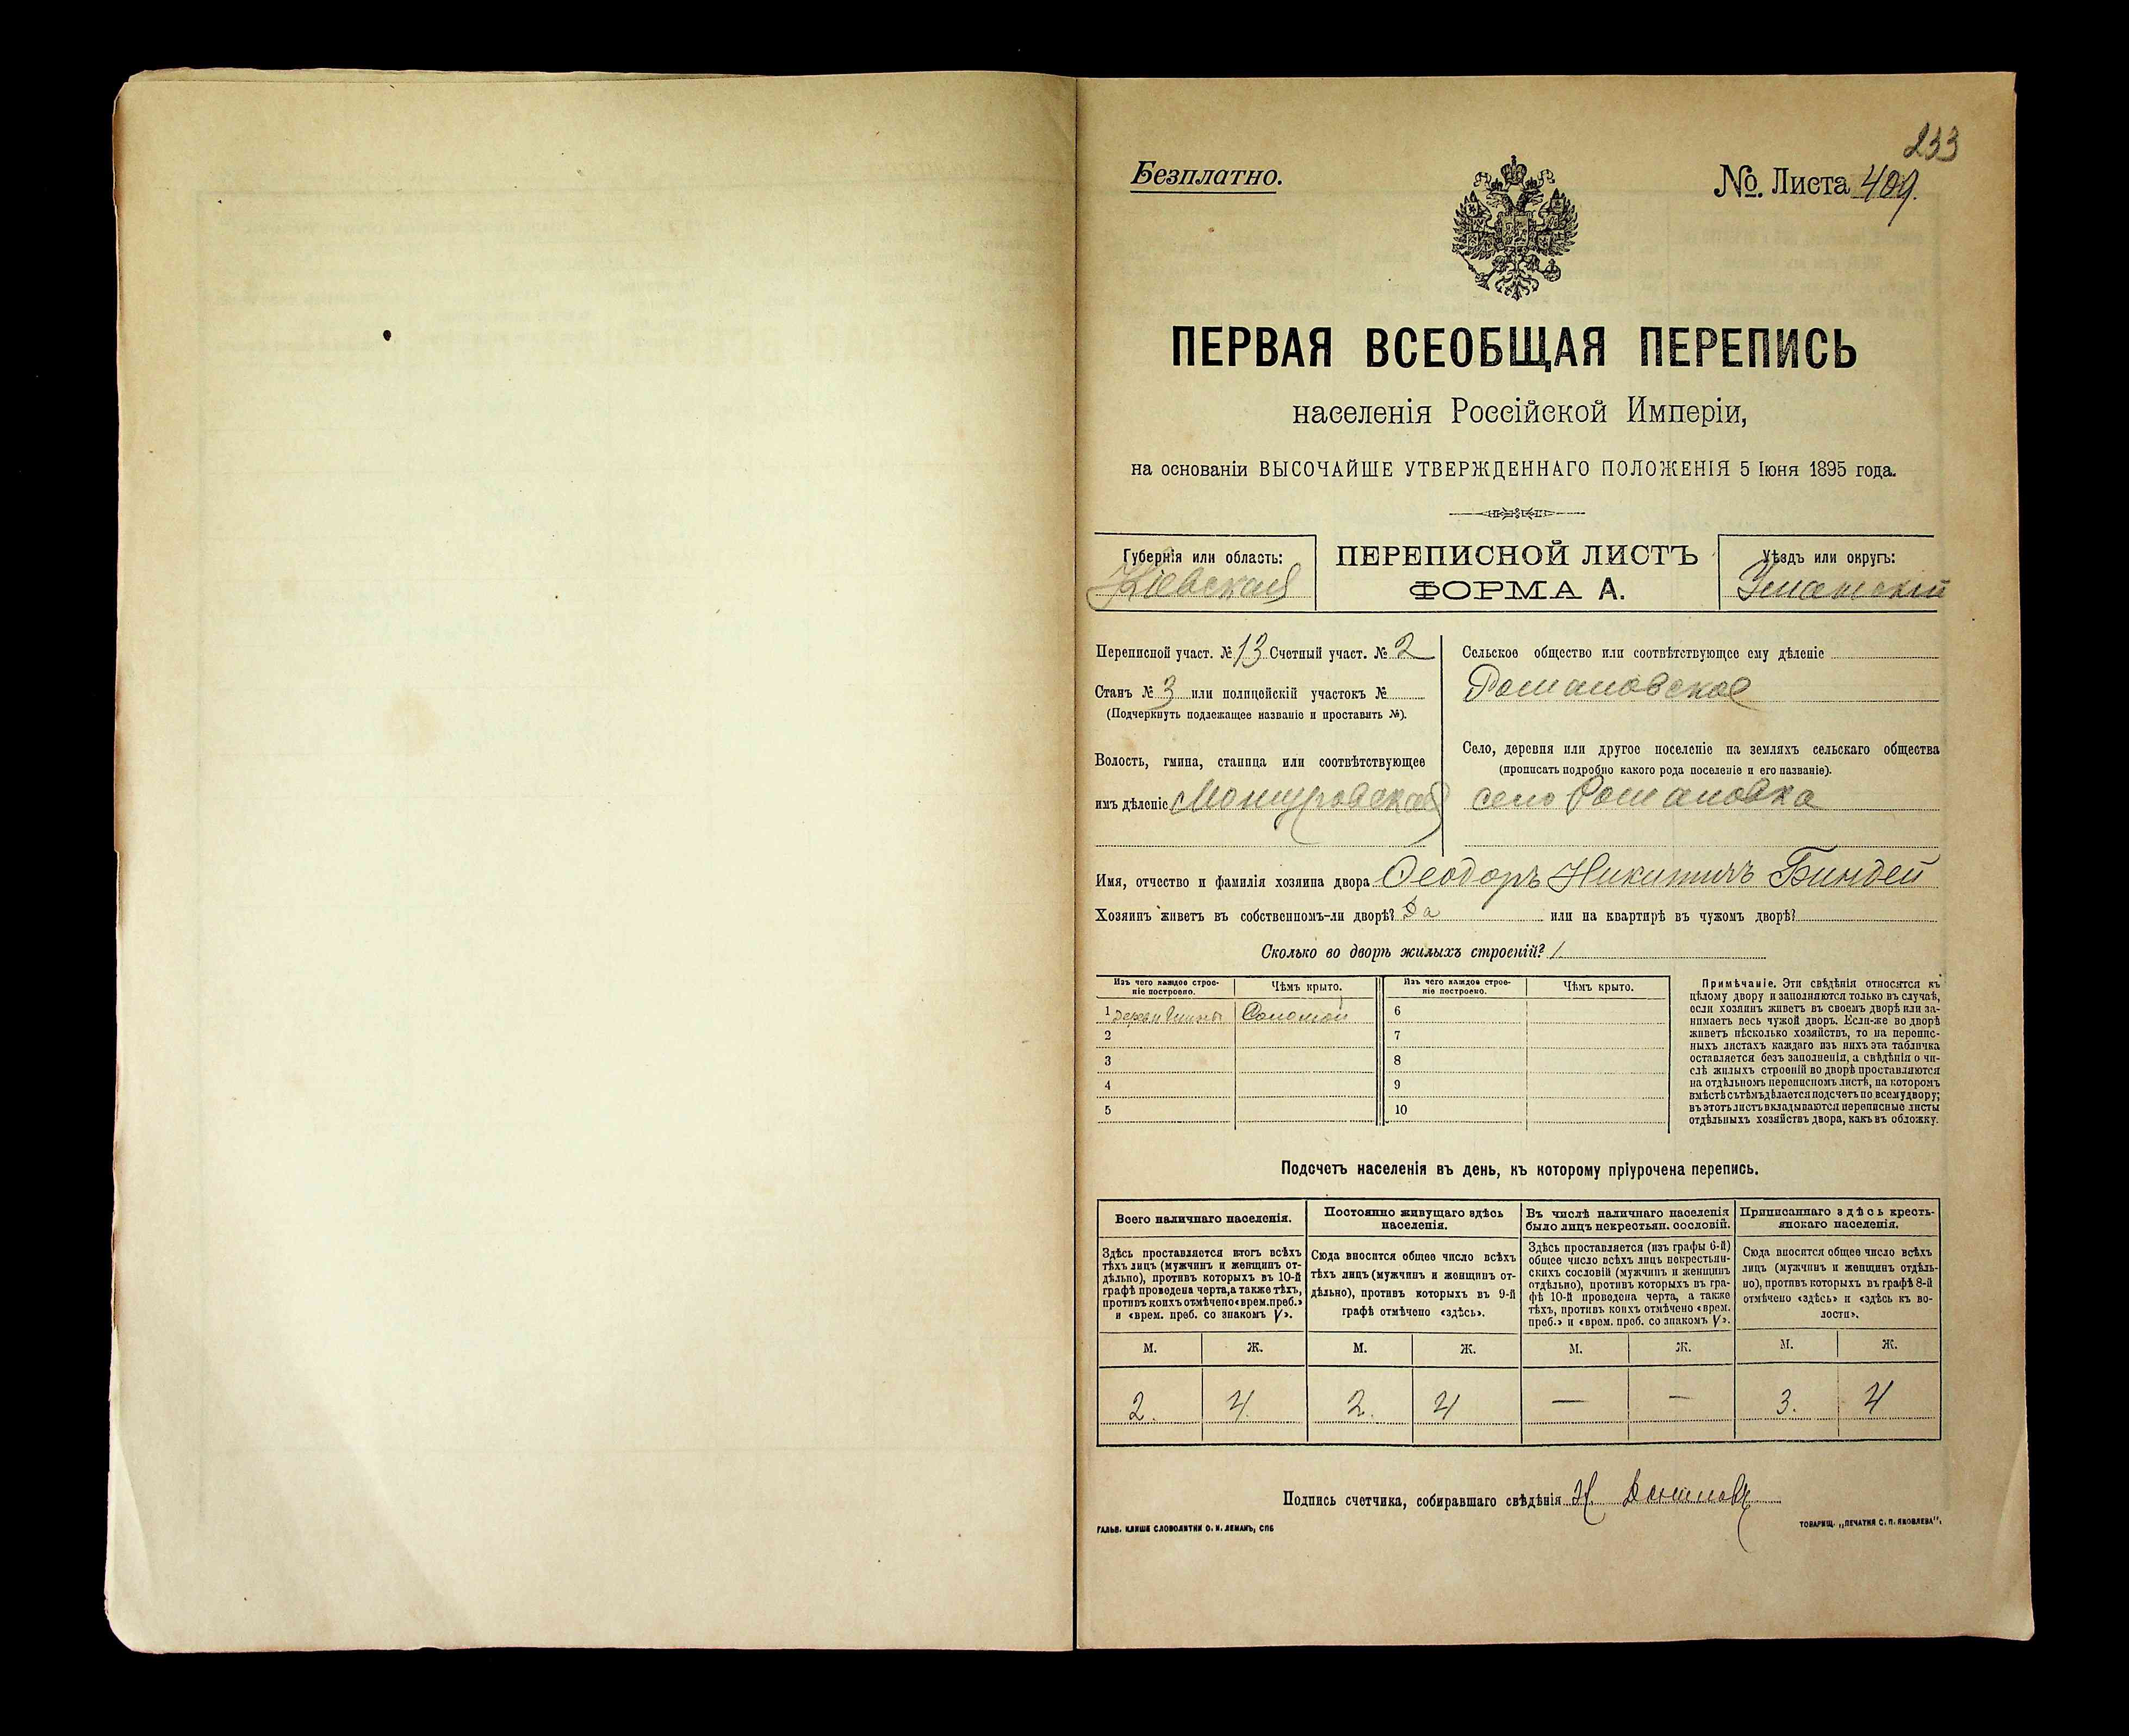 233
Безплатно.
№. Листа 409.
ПЕРВАЯ ВСЕОБЩАЯ ПЕРЕПИСЬ
населенія Россійской Имперіи,
на основаніи ВЫСОЧАЙШЕ УТВЕРЖДЕННАГО ПОЛОЖЕНІЯ 5 Іюня 1895 года.
Губернія или область:
Кіевская
ПЕРЕПИСНОЙ ЛИСТЪ
ФОРМА А.
Уѣздъ или округъ:
Уманскій
Переписной участ. № 13 Счетный участ. № 2
Станъ № 3 или полицейскій участокъ №
(Подчеркнуть подлежащее названіе и проставить №).
Волость, гмина, станица или соотвѣтствующее
имъ дѣленіе
Сельское общество или соотвѣтствующее ему дѣленіе
Романовское
Село, деревня или другое поселеніе на земляхъ сельскаго общества
(прописать подробно какого рода поселеніе и его названіе).
село Романовка
Имя, отчество и фамилія хозяина двора Ѳеодоръ Никитичъ Биндей
Хозяинъ живетъ въ собственномъ-ли дворѣ? Да или на квартирѣ въ чужомъ дворѣ?
Сколько во дворѣ жилыхъ строеній? 1
Изъ чего каждое строе-
ніе построено.
Чѣмъ крыто.
Изъ чего каждое строе-
ніе построено.
Чѣмъ крыто.
1 Соломой 6
2 7
3 8
4 9
5 10
Примѣчаніе. Эти свѣдѣнія относятся къ
цѣлому двору и заполняются только въ случаѣ,
если хозяинъ живетъ въ своемъ дворѣ или за-
нимаетъ весь чужой дворъ. Если-же во дворѣ
живетъ нѣсколько хозяйствъ, то на перепис-
ныхъ листахъ каждаго изъ нихъ эта табличка
оставляется безъ заполненія, а свѣдѣнія о чи-
слѣ жилыхъ строеній во дворѣ проставляются
на отдѣльномъ переписномъ листѣ, на которомъ
вмѣстѣ съ тѣмъ дѣлается подсчетъ по всему двору;
въ этотъ листъ вкладываются переписные листы
отдѣльныхъ хозяйствъ двора, какъ въ обложку.
Подсчетъ населенія въ день, къ которому пріурочена перепись.
Всего наличнаго населенія.
Здѣсь проставляется итогъ всѣхъ
тѣхъ лицъ (мужчинъ и женщинъ от-
дѣльно), противъ которыхъ въ 10-й
графѣ проведена черта, а также тѣхъ,
противъ коихъ отмѣчено «врем. преб.»
и «врем. преб. со знакомъ V».
М. Ж.
2. 4.
Постоянно живущаго здѣсь
населенія.
Сюда вносится общее число всѣхъ
тѣхъ лицъ (мужчинъ и женщинъ от-
дѣльно), противъ которыхъ въ 9-й
графѣ отмѣчено «здѣсь».
М. Ж.
2. 4
Въ числѣ наличнаго населенія
было лицъ некрестьян. сословій.
Здѣсь проставляется (изъ графы 6-й)
общее число всѣхъ лицъ некрестьян-
скихъ сословій (мужчинъ и женщинъ
отдѣльно), противъ которыхъ въ гра-
фѣ 10-й проведена черта, а также
тѣхъ, противъ коихъ отмѣчено «врем.
преб.» и «врем. преб. со знакомъ V».
М. Ж.
— —
Приписаннаго здѣсь кресть-
янскаго населенія.
Сюда вносится общее число всѣхъ
лицъ (мужчинъ и женщинъ отдѣль-
но), противъ которыхъ въ графѣ 8-й
отмѣчено «здѣсь» и «здѣсь къ во-
лости».
М. Ж.
3. 4
Подпись счетчика, собиравшаго свѣдѣнія
ГАЛЬВ. КЛИШЕ СЛОВОЛИТНИ О. И. ЛЕМАНЪ, СПБ
ТОВАРИЩ. „ПЕЧАТНЯ С. П. ЯКОВЛЕВА“.